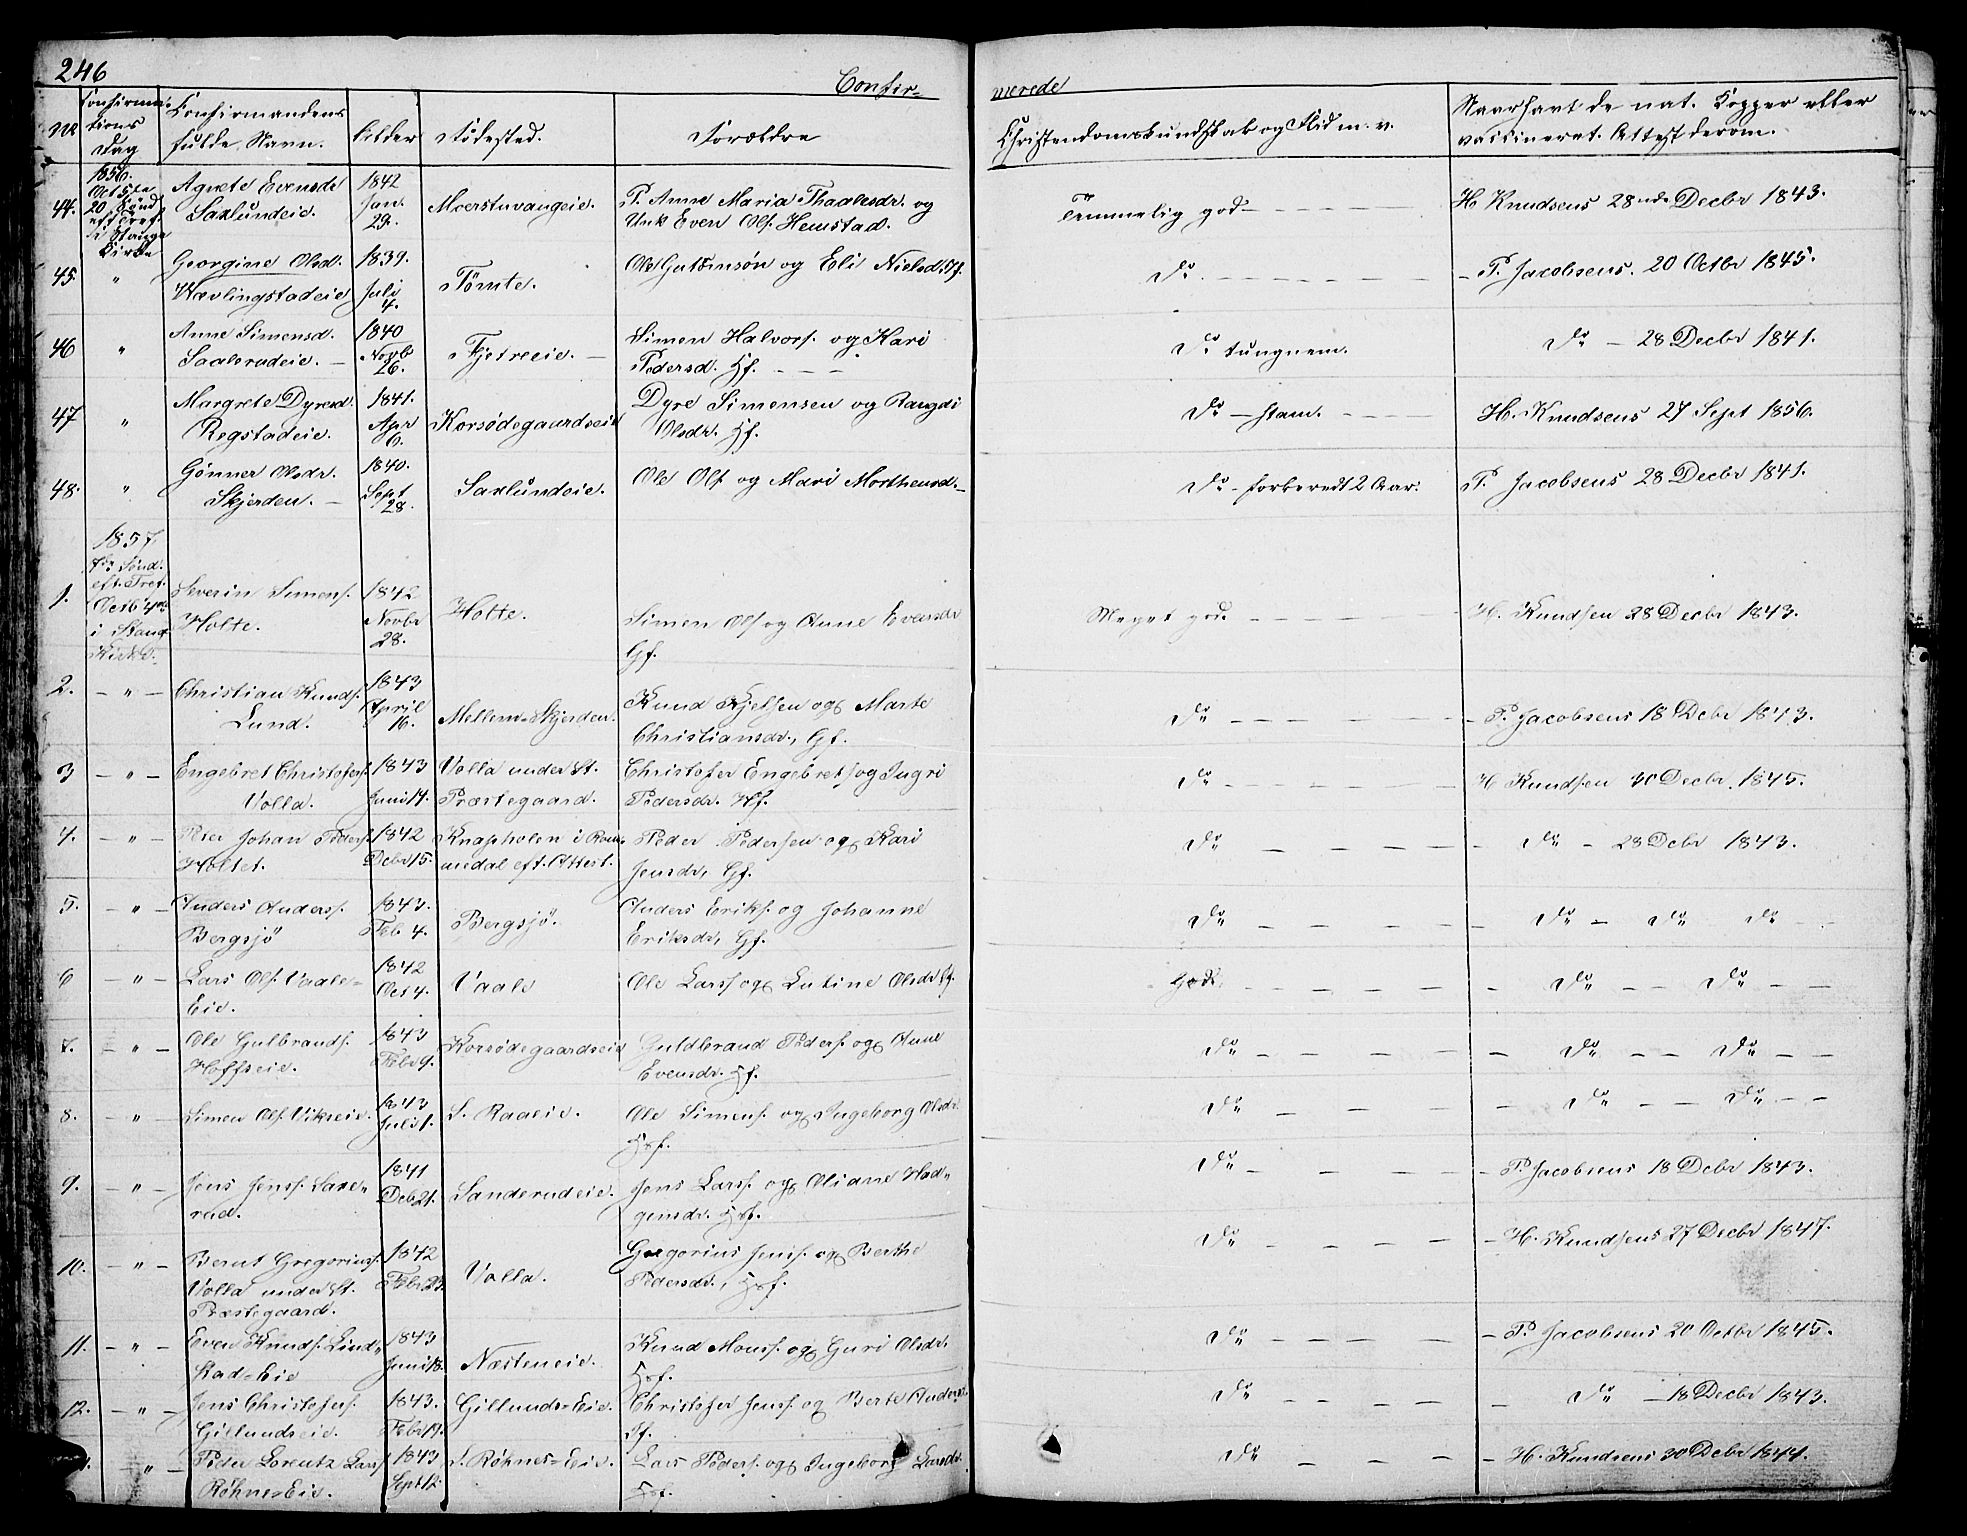 246
Confir-
merede
No
Confirma-
tions
Dag
Confirmandens
fulde Navn.
Alder
Födested.
Forældre
Christendomskundskab og Flid m. v.
Naar havt de nat. Kopper eller
vaccineret. Attest derom.
44.
1856.
Oct 5te
20 Sönd
eft Tref.
i Stange
Kirke
Agnete Evensdr
Saxlundeie.
1842
Jan.
29.
Mærstuvangeie.
P. Anne Maria Thaalesdr. og
Unk Even Ols. Hemstad.
Temmelig god
H Knudsens 28nde Decbr 1843.
45.
"
Georgine Olsd.
Wævlingstadeie
1839.
Juli
4.
Tömte.
Ole Guttmsön og Eli Nielsd.
Do
P. Jacobsens. 20 Octbr 1845.
46
"
Anne Simensd.
Saalerudeie.
1840
Novb
26.
Fjetreeie.
Simen Halvors. og Kari
Pedersd. Hf.
Do tungnem.
Do 28 Decbr 1841.
47
"
Margrete Dyresd.
Regstadeie.
1841.
Apr
6.
Korsödegaardseie
Dyre Simensen og Rangdi
Olsdr. Hf.
Do – stam.
H. Knudsens 27 Sept 1856.
48.
"
Gönner Olsdr.
Skjerden.
1840.
Sept
28.
Saxlundeie.
Ole Ols og Mari Morthensd.
Do – forberedt 2 Aar.
P. Jacobsens 28 Decbr 1841.
1.
1857.
Sönd.
eft. Tref.
Oct 4de
i Stang
Kirke.
Severin Simens.
Holte.
1842
Novbr
28.
Holte.
Simen Ols og Anne Evensdr
Gf.
Meget god.
H. Knudsen 28 Decbr 1843.
2.
– " –
Christian Knuds.
Lund.
1843
April
16.
Mellem-Skjerden.
Knud Kjelsen og Marte
Christiansdr., Gf.
Do
P. Jacobsens 18 Debr 1843.
3
– " –
Engebret Christofers.
Volla.
1843
Juni 14.
Volla under St.
Præstegaard.
Christofer Engebrets og Ingri
Pedersdr. Hf.
Do
H Knudsen 30 Decbr. 1845.
4.
– " –
Peter Johan Peders.
Holtet.
1842
Debr 15.
Knapholen i Rom-
misdal eft. Attest.
Peder Pedersen og Kari
Jensdr, Gf.
Do
Do – 28 Debr 1843.
5.
– " –
Anders Anders.
Bergsjö
1843.
Feb 4.
Bergsjö.
Anders Eriks. og Johanne
Eriksdr, Gf.
Do
Do – Do Do
6
– " –
Lars Ols. Vaale-
Eie.
1842
Oct 4.
Vaale
Ole Larss og Lutine Olsdr
God.
Do Do
7.
– " –
Ole Gulbrands.
Hoffseie.
1843
Febr 9.
Korsödegaardseie
Guldbrand Peders. og Anne
Evensdr. Hf.
Do
Do Do
8.
– "
Simen Ols. Vikseie.
1843
Juli 1.
S. Raaeie.
Ole Simens. og Ingeborg Olsdr.
Hsf.
Do
Do Do
9.
– " –
Jens Jenss. Saxe-
rud.
1841
Deb 21.
Sanderudeie.
Jens Larss. og Oliane Had-
gensdr. Hsf.
Do
P. Jacobsens 18 Debr 1843.
10.
– " –
Bernt Gregorius.
Volla under St.
Præstegaard.
1842
Febr 23.
Volla.
Gregorius Jenss. og Berthe
Pedersdr., Hsf.
Do
H. Knudsens 27 Decbr 1847.
11.
– " –
Even Knuds. Lind-
stad-Eie
1843
Juni 18.
Næsteneie.
Knud Monss. og Guri Olsdr.
Hsf.
Do
P. Jacobsens 20 Octbr 1845.
12.
– " –
Jens Christofers.
Gillundseie.
1843.
Febr 19.
Gillunds-Eie.
Christofer Jenss. og Berte Anders.
Do
Do – 18 Decbr 1843.
– " –
Peder Lorentz Larss
Röhnes Eie.
1843
Sept 12
S. Röhnes-Eie.
Lars Peders. og Ingeborg Larsdr.
Hsf.
Do
H. Knudsens 30 Debr 1844.